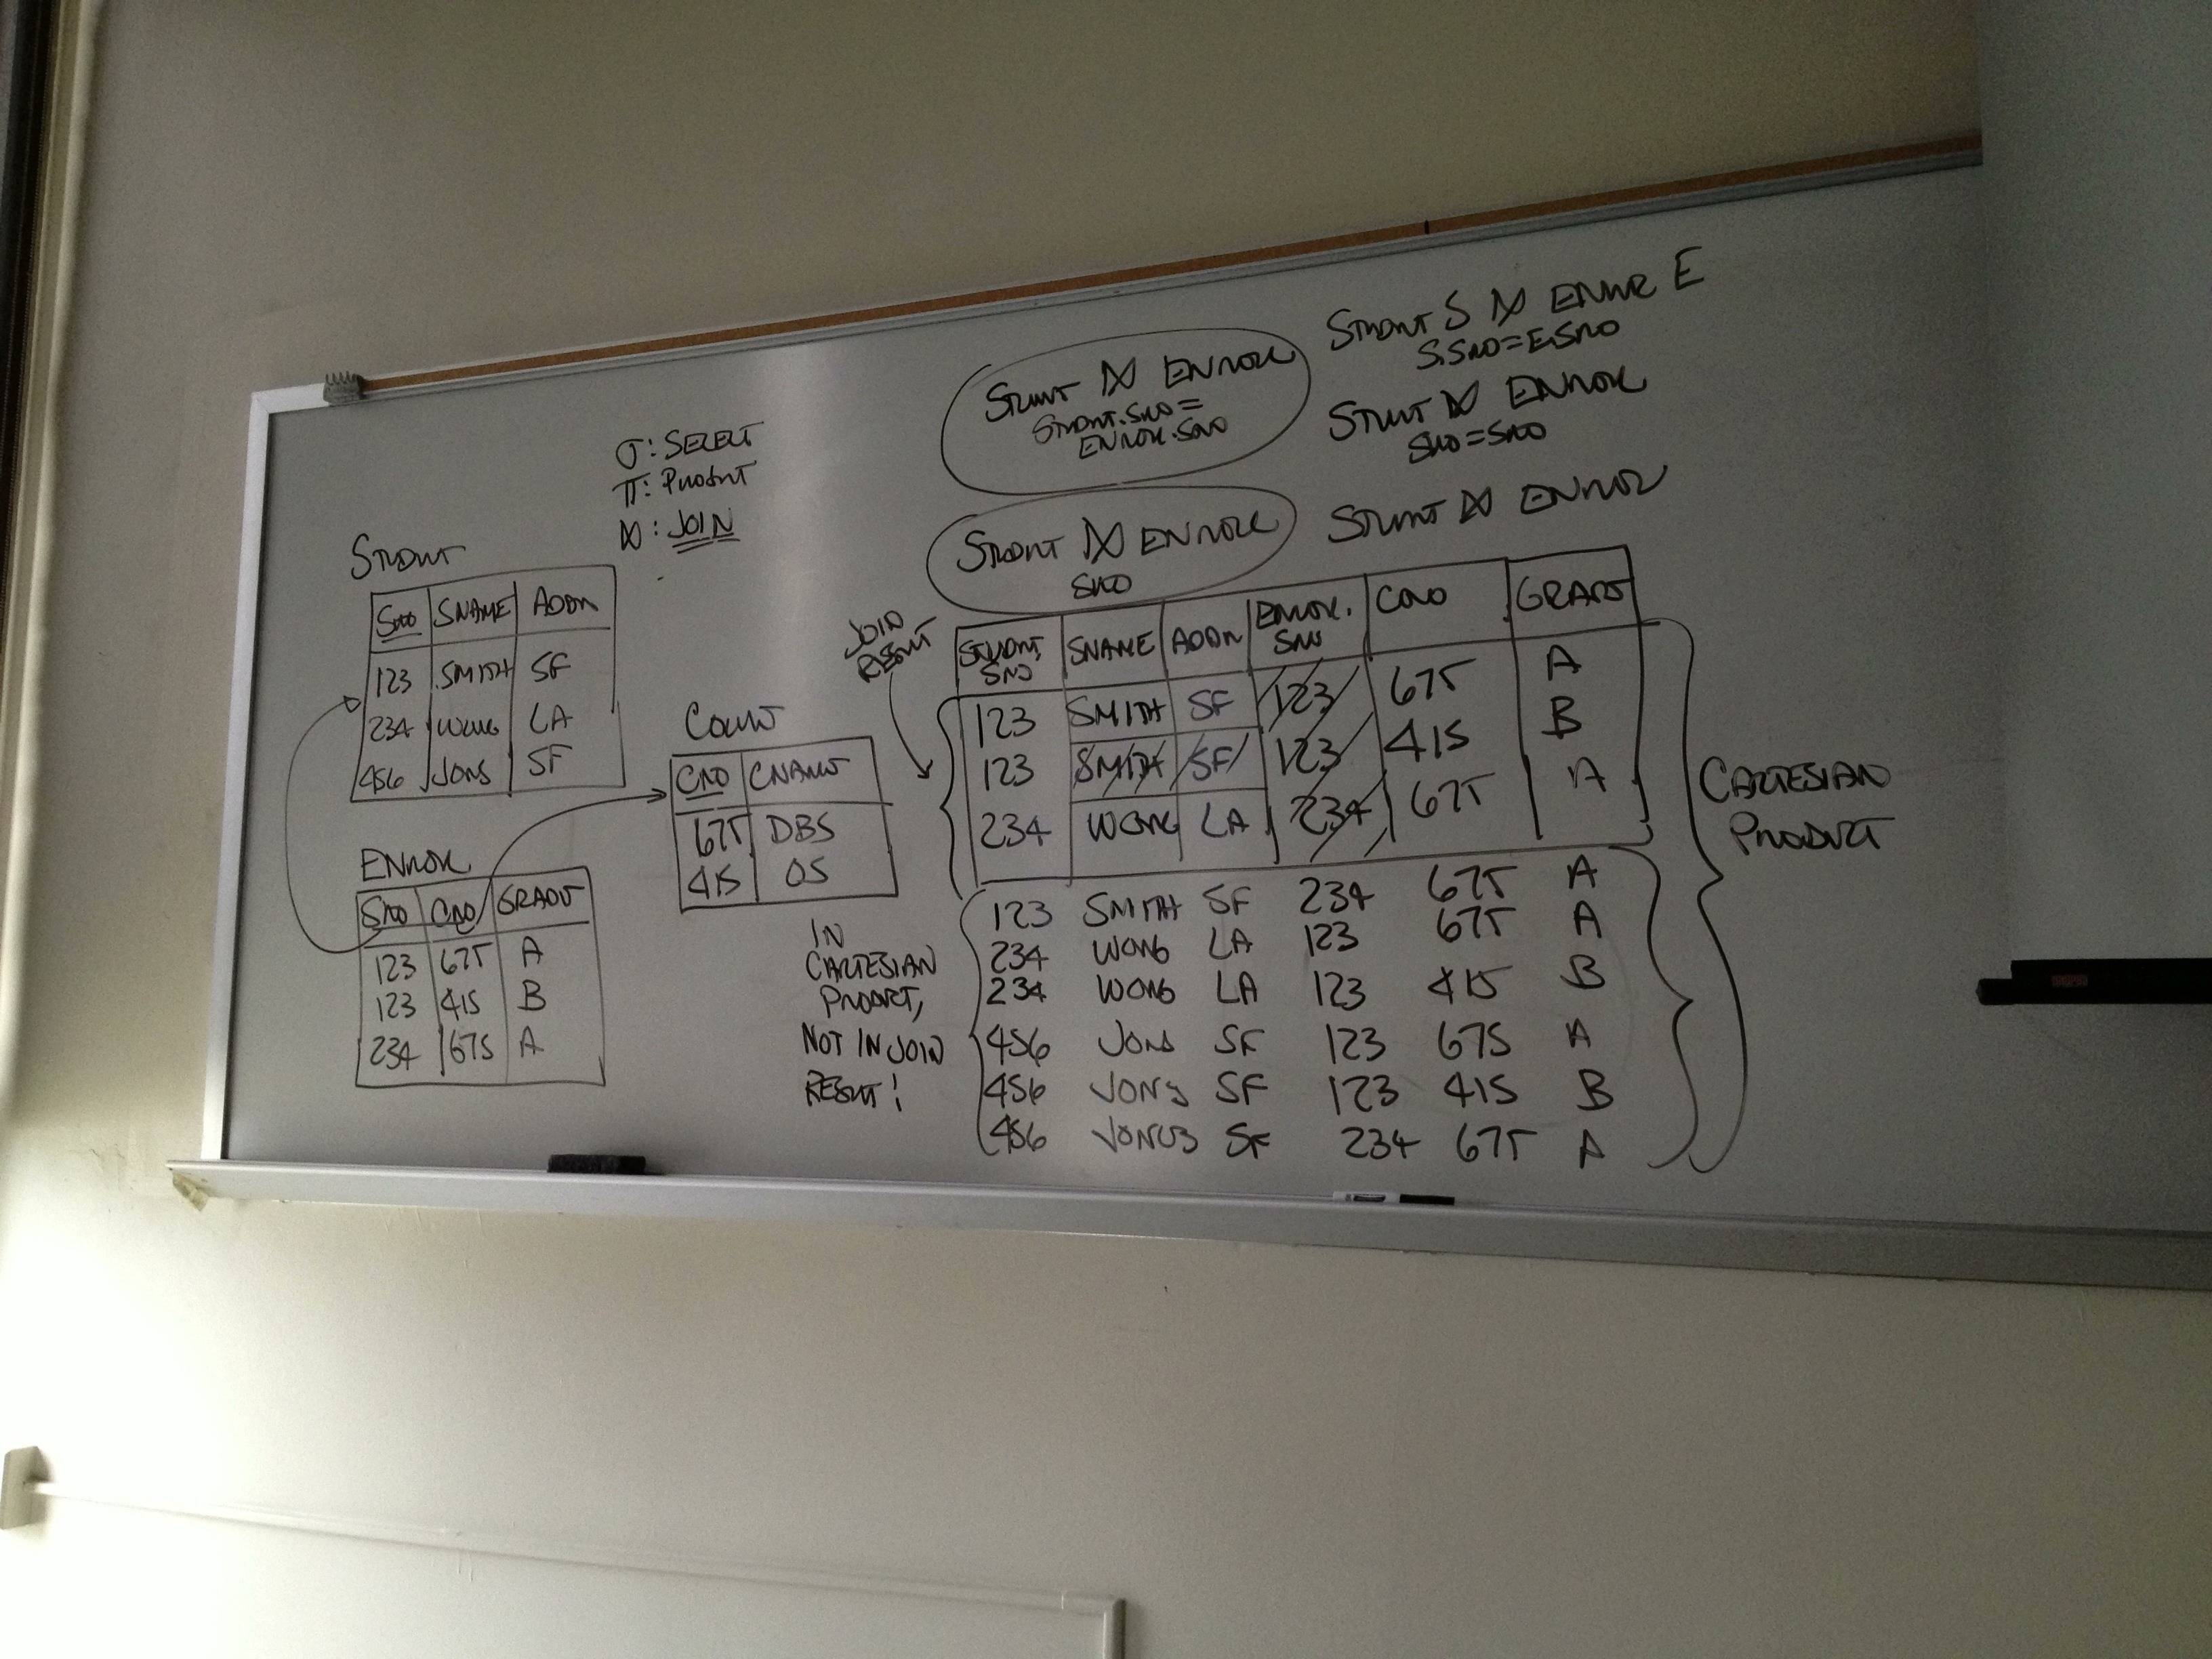 σ: SELECT
π: PROJECT
⋈: JOIN
STUDENT
SNO SNAME ADDR
123 SMITH SF
234 WONG LA
456 JONES SF
ENROLL
SNO CNO GRADE
123 675 A
123 415 B
234 675 A
COURSE
CNO CNAME
675 DBS
415 OS
STUDENT ⋈ ENROLL
STUDENT.SNO =
ENROLL.SNO
STUDENT S ⋈ ENROLL E
S.SNO=E.SNO
STUDENT ⋈ ENROLL
SNO=SNO
STUDENT ⋈ ENROLL
SNO
STUDENT ⋈ ENROLL
JOIN
RESULT
STUDENT. SNO SNAME ADDR ENROLL. SNO CNO GRADE
123 SMITH SF 123 675 A
123 SMITH SF 123 415 B
234 WONG LA 234 675 A
123 SMITH SF 234 675 A
234 WONG LA 123 675 A
234 WONG LA 123 415 B
456 JONES SF 123 675 A
456 JONES SF 123 415 B
456 JONES SF 234 675 A
IN
CARTESIAN
PRODUCT,
NOT IN JOIN
RESULT!
CARTESIAN
PRODUCT